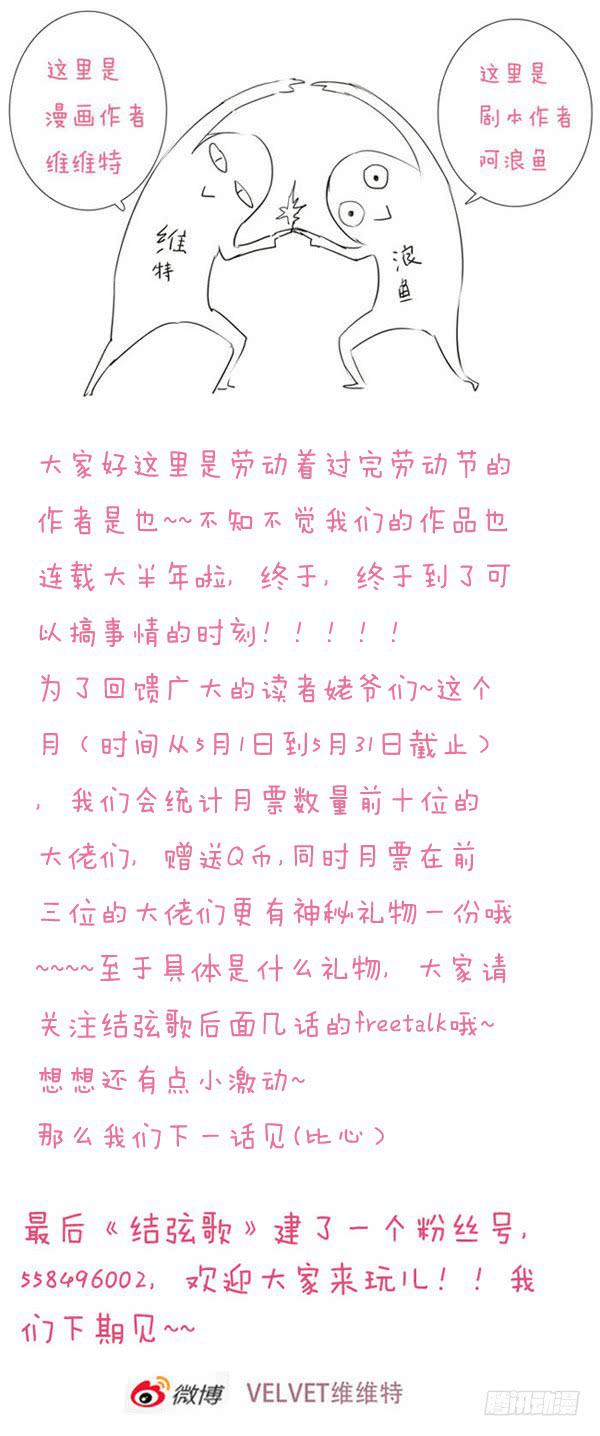 这里是
漫画作者
维维特
这里是
剧本作者
阿浪鱼
维
特
浪
鱼
大家好这里是劳动着过完劳动节的
作者是也~~不知不觉我们的作品也
连载大半年啦，终于，终于到了可
以搞事情的时刻！！！！！
为了回馈广大的读者姥爷们~这个
月（时间从5月1日到5月31日截止）
，我们会统计月票数量前十位的
大佬们，赠送Q币,同时月票在前
三位的大佬们更有神秘礼物一份哦
~~~~至于具体是什么礼物，大家请
关注结弦歌后面几话的freetalk哦~
想想还有点小激动~
那么我们下一话见(比心）
最后《结弦歌》建了一个粉丝号，
558496002，欢迎大家来玩儿！！我
们下期见~~
微博 VELVET维维特
腾讯动漫